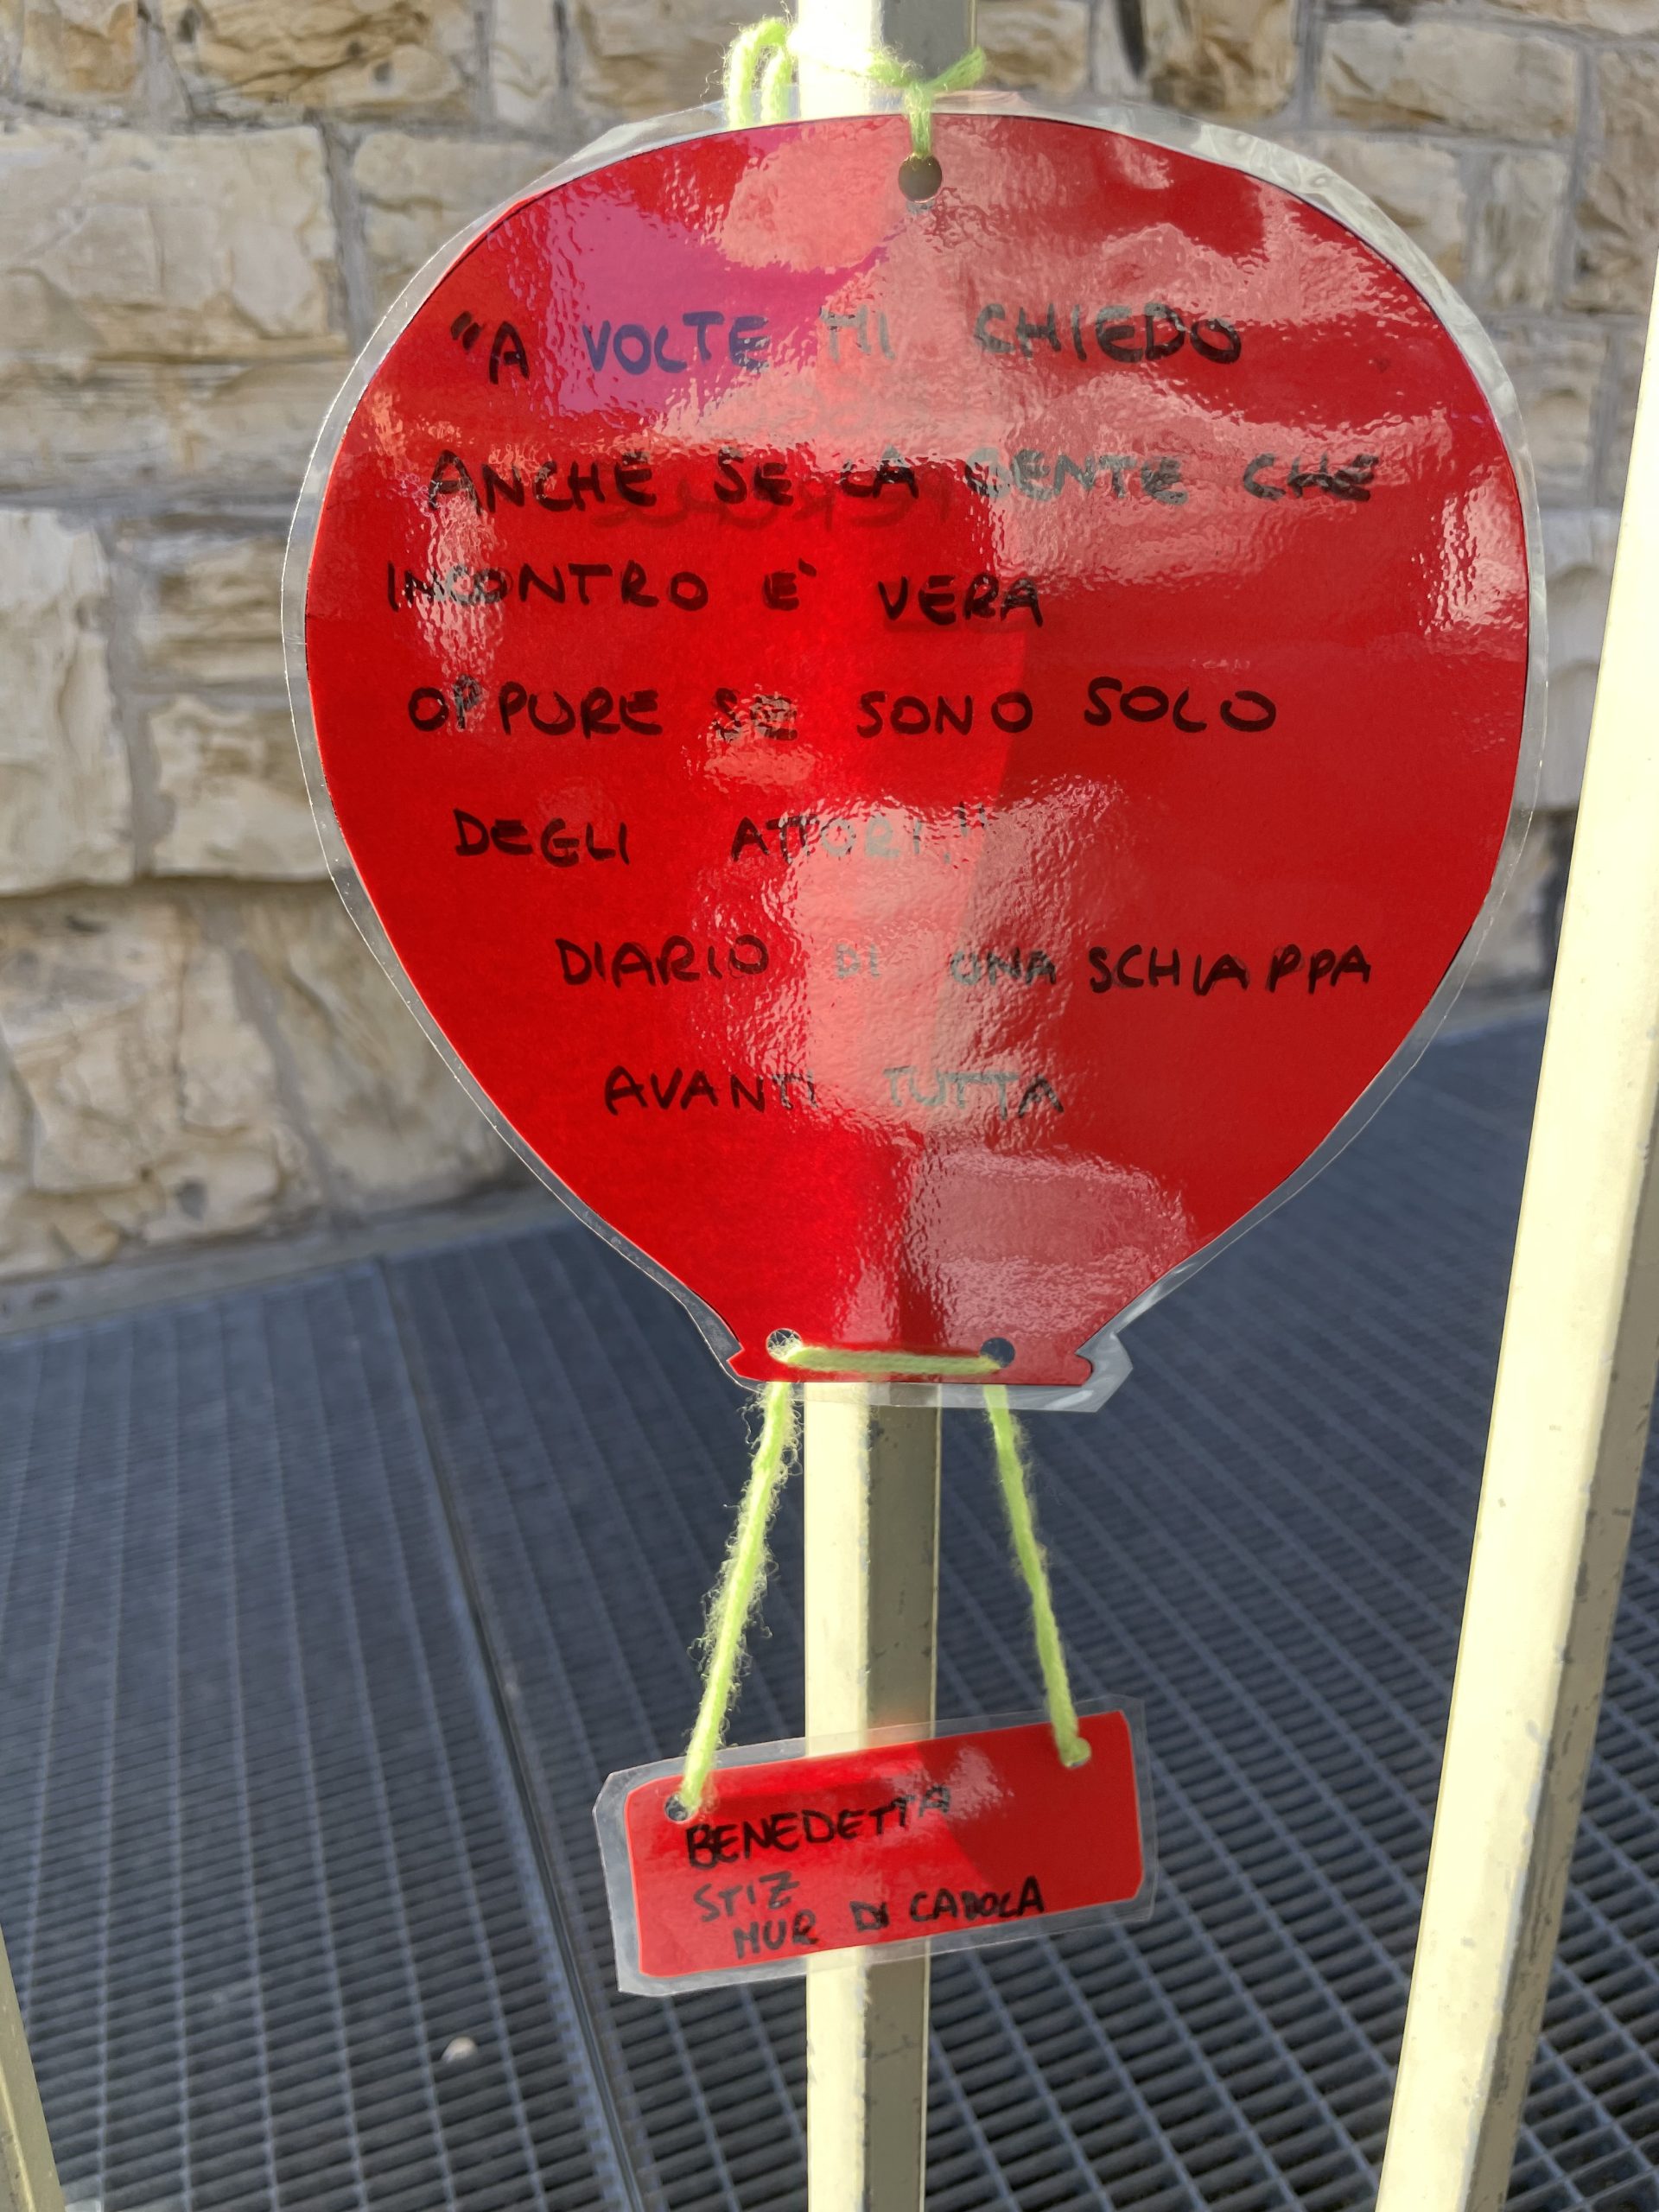 "A VOLTE MI CHIEDO
ANCHE SE LA GENTE CHE
INCONTRO E' VERA
OPPURE SE SONO SOLO
DEGLI ATTORI."
DIARIO DI UNA SCHIAPPA
AVANTI TUTTA
BENEDETTA
STIZ
MUR DI CADOLA